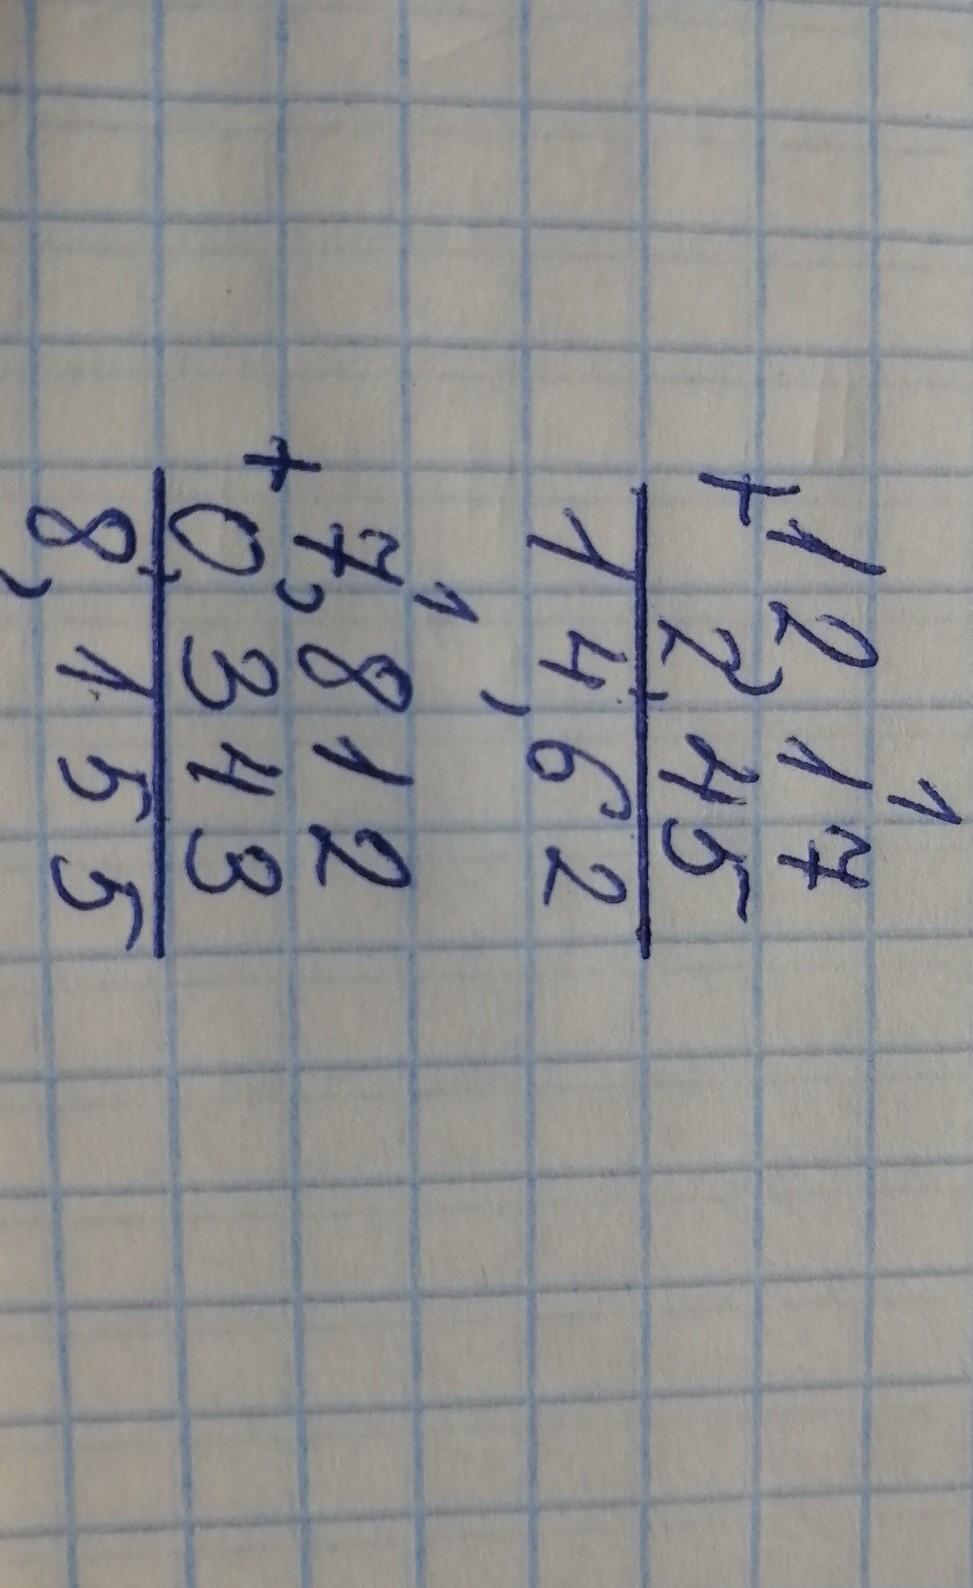 1
12,17
+
2,45
14,62
1
7,812
+
0,343
8,155